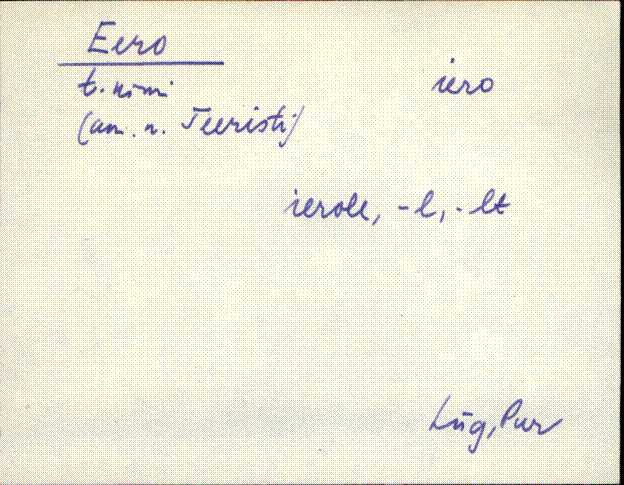 Eero
t. nimi
iero
(am. n. Teeristi)
ierole, -l, -lt
Lüg, Pur